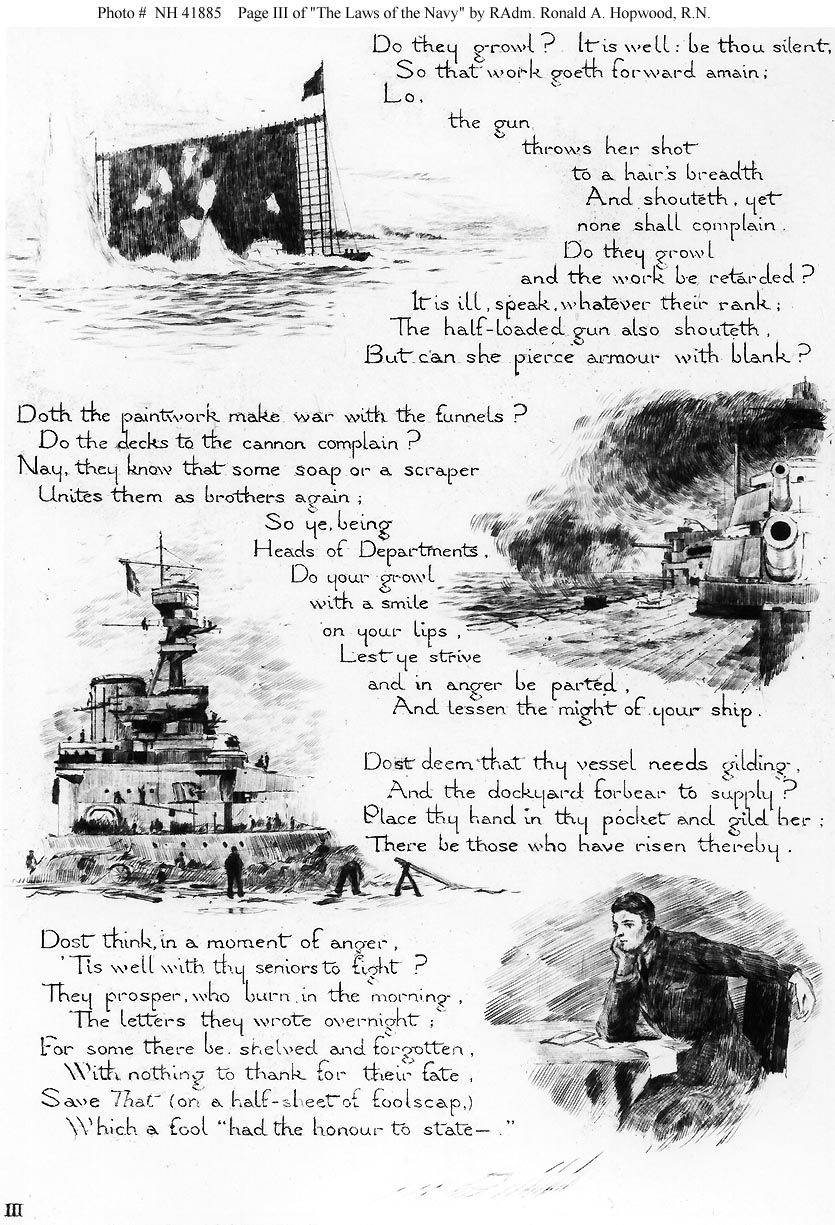 Photo # NH 41885 Page III of "The Laws of the Navy" by RAdm. Ronald A. Hopwood, R.N.
Do they growl? It is well: be thou silent,
So that work goeth forward amain;
Lo,
the gun
throws her shot
to a hair's breadth
And shouteth, yet
none shall complain.
Do they growl
and the work be retarded?
It is ill, speak, whatever their rank;
The half-loaded gun also shouteth,
But can she pierce armour with blank?
Doth the paintwork make war with the funnels?
Do the decks to the cannon complain?
Nay, they know that some soap or a scraper
Unites them as brothers again;
So ye, being
Heads of Departments,
Do your growl
with a smile
on your lips,
Lest ye strive
and in anger be parted,
And lessen the might of your ship.
Dost deem that thy vessel needs gilding,
And the dockyard forbear to supply?
Place thy hand in thy pocket and gild her;
There be those who have risen thereby.
Dost think, in a moment of anger,
'Tis well with thy seniors to fight?
They prosper, who burn in the morning,
The letters they wrote overnight;
For some there be, shelved and forgotten,
With nothing to thank for their fate,
Save That (on a half-sheet of foolscap,)
Which a fool "had the honour to state—."
III